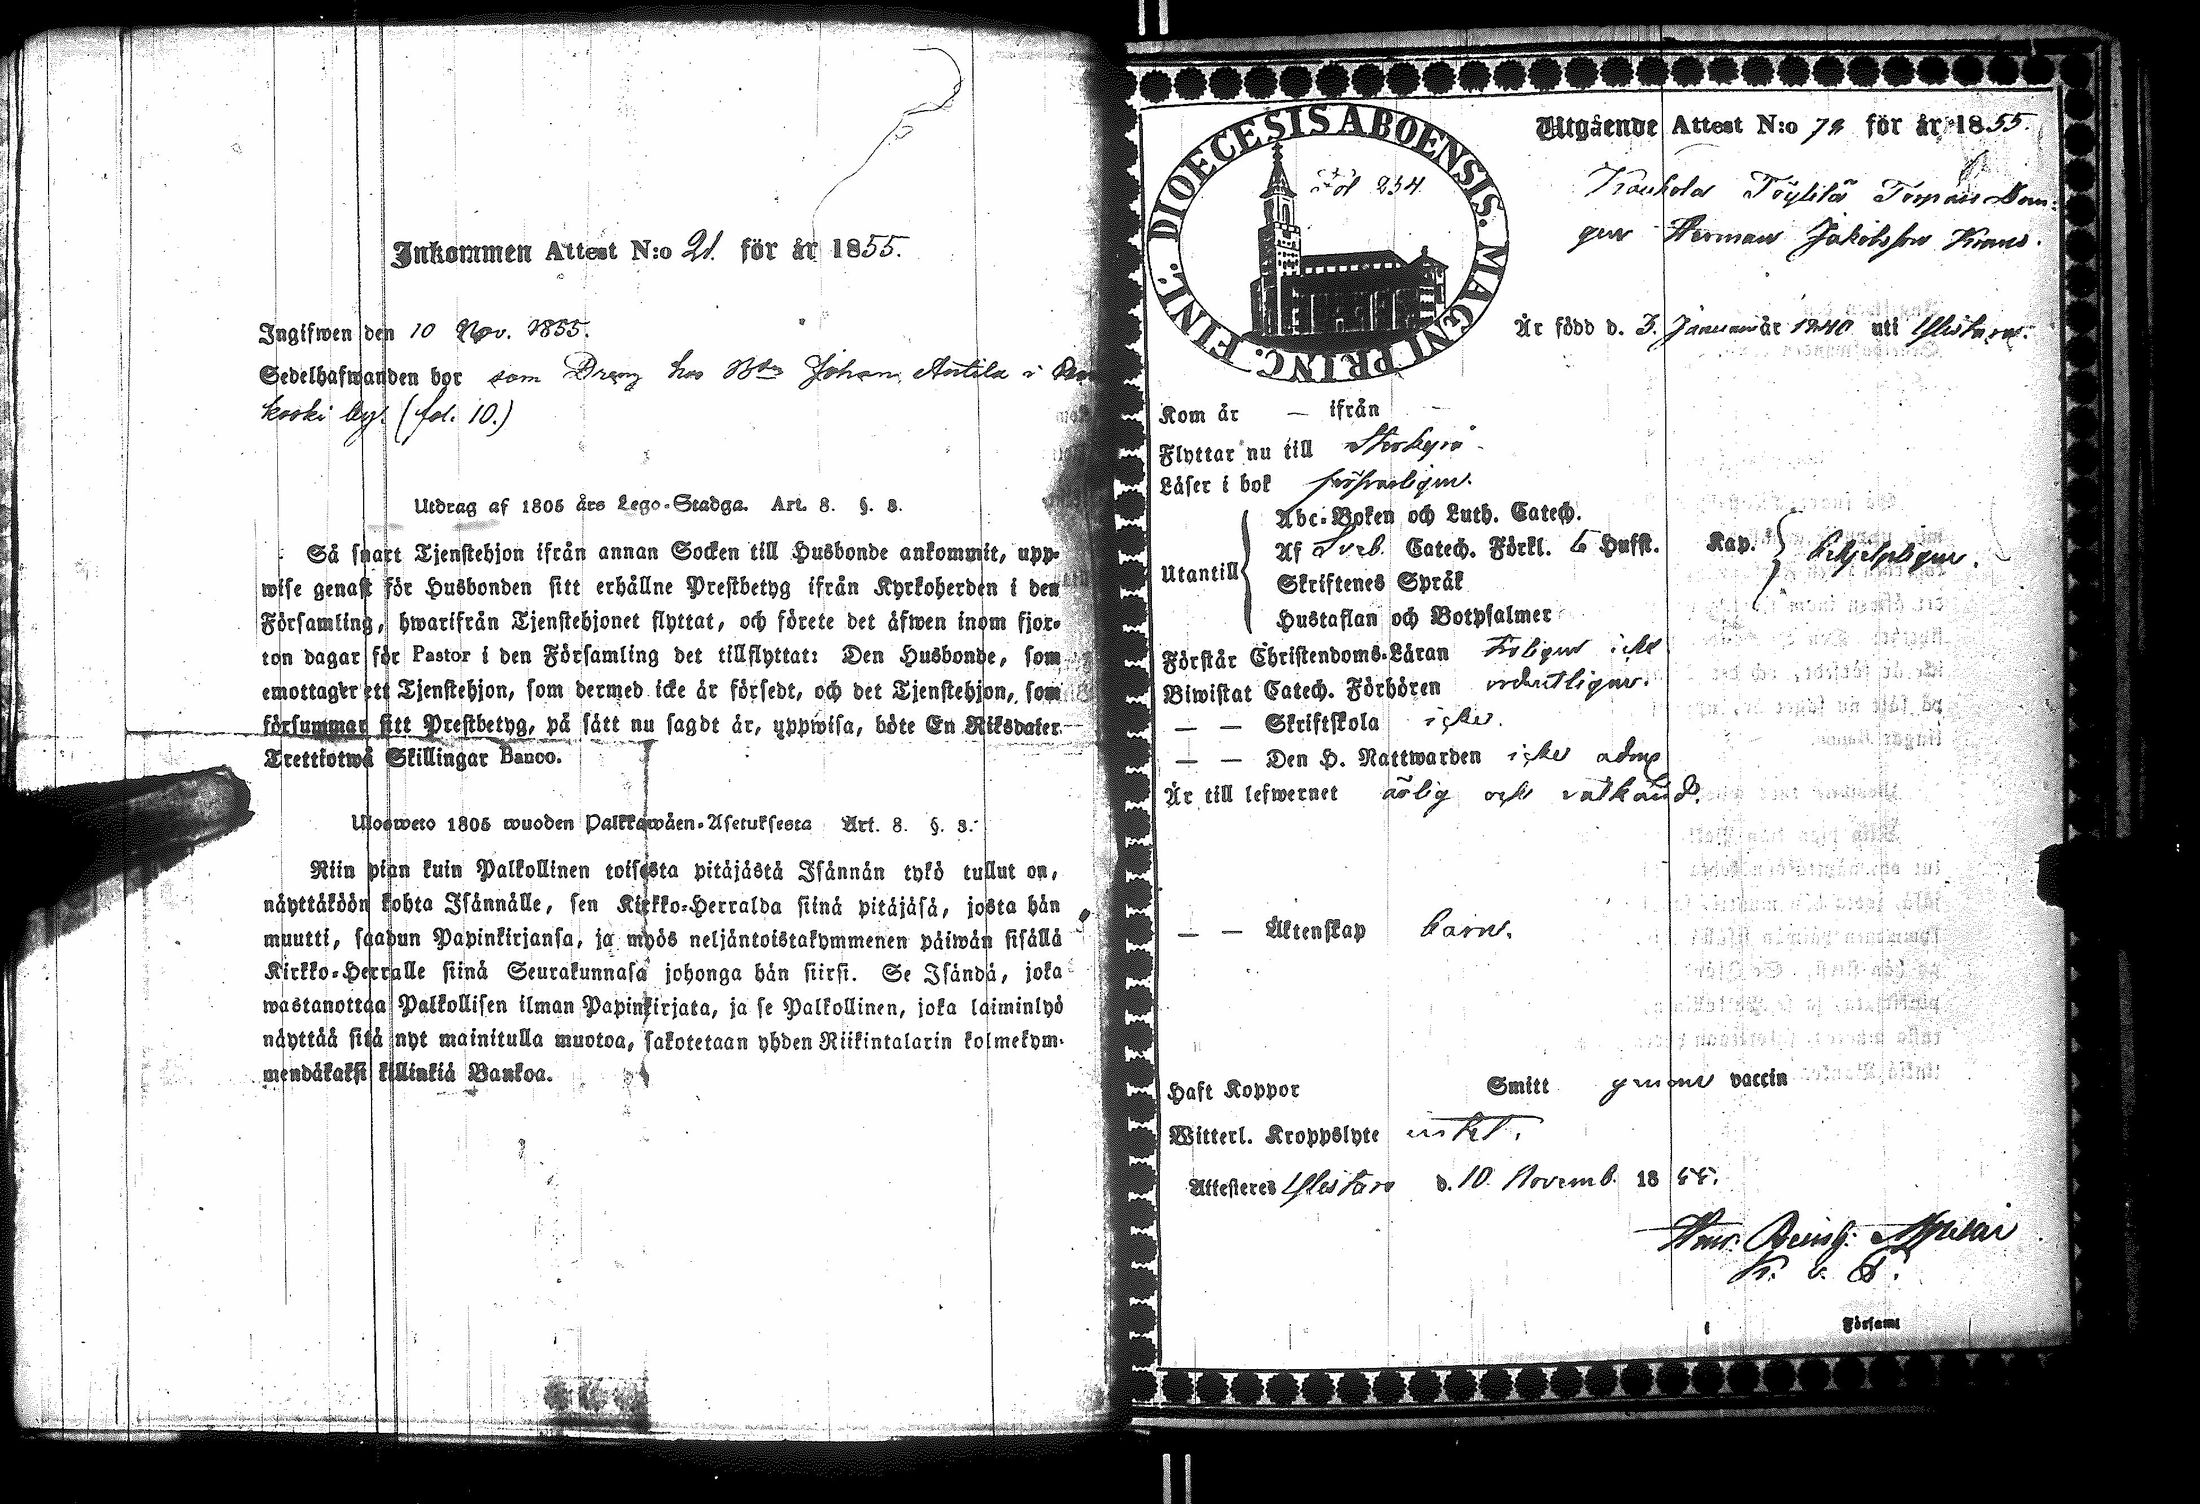 Inkommen Attest N:o 21. för år 1855.
Ingifwen den 10 Nov. 1855.
Sedelhafwanden bor som Dreng hos Bdn Johan Anttila i
koski by. (fol. 10.)
Utdrag af 1805 års Lego-Stadga. Art. 8. §. 8.
Så snart Tjenstehjon ifrån annan Socken till Husbonde ankommit, upp-
wise genast för Husbonden sitt erhållne Prestbetyg ifrån Kyrkoherden i den
Församling, hwarifrån Tjenstehjonet flyttat, och förete det äfwen inom fjor-
ton dagar för Pastor i den Församling det tillflyttat: Den Husbonde, som
emottager ett Tjenstehjon, som dermed icke är försedt, och det Tjenstehjon, som
försummar sitt Prestbetyg, på sätt nu sagdt är, uppwisa, böte En Riksdaler
Trettiotwå Skillingar Banco.
Ulosweto 1805 wuoden Palkkawäen-Asetuksesta Art. 8. §. 8.
Niin pian kuin Palkollinen toisesta pitäjästä Isännän tykö tullut on,
näyttäköön kohta Isännälle, sen Kirkko-Herralda siinä pitäjäsä, josta hän
muutti, saadun Papinkirjansa, ja myös neljäntoistakymmenen päiwän sisällä
Kirkko-Herralle siinä Seurakunnasa johonga hän siirsi. Se Isändä, joka
wastanottaa Palkollisen ilman Papinkirjata, ja se Palkollinen, joka laiminlyö
näyttää sitä nyt mainitulla muotoa, sakotetaan yhden Riikintalarin kolmekym-
mendäkaksi killinkiä Bankoa.
DIOECESIS ABOENSIS. MAGNI PRINC. FINL.
Fol 234.
Utgående Attest N:o 72 för år 1855.
Töylilä Torpare Son
Herman Jakobsson
Är född d. 3. Januari år 1840 uti Ylistaro.
Kom år — ifrån —
Flyttar nu till Storkyro
Läser i bok försvarligen.
Utantill
Abc-Boken och Luth. Catech.
Af Sveb. Catech. Förkl. 6 Hufst. Kap. hjelpligen.
Skriftenes Språk
Hustaflan och Botpsalmer
Förstår Christendoms-Läran troligen icke
Biwistat Catech. Förhören ordentligen.
— — Skriftskola icke.
— — Den H. Nattwarden icke adm.
Är till lefwernet ärlig och välkänd.
— — Äktenskap barn.
Haft Koppor Smitt genom vaccin
Witterl. Kroppslyte intet.
Attesteres Ylistaro d. 10 Novemb. 1855.
Församl